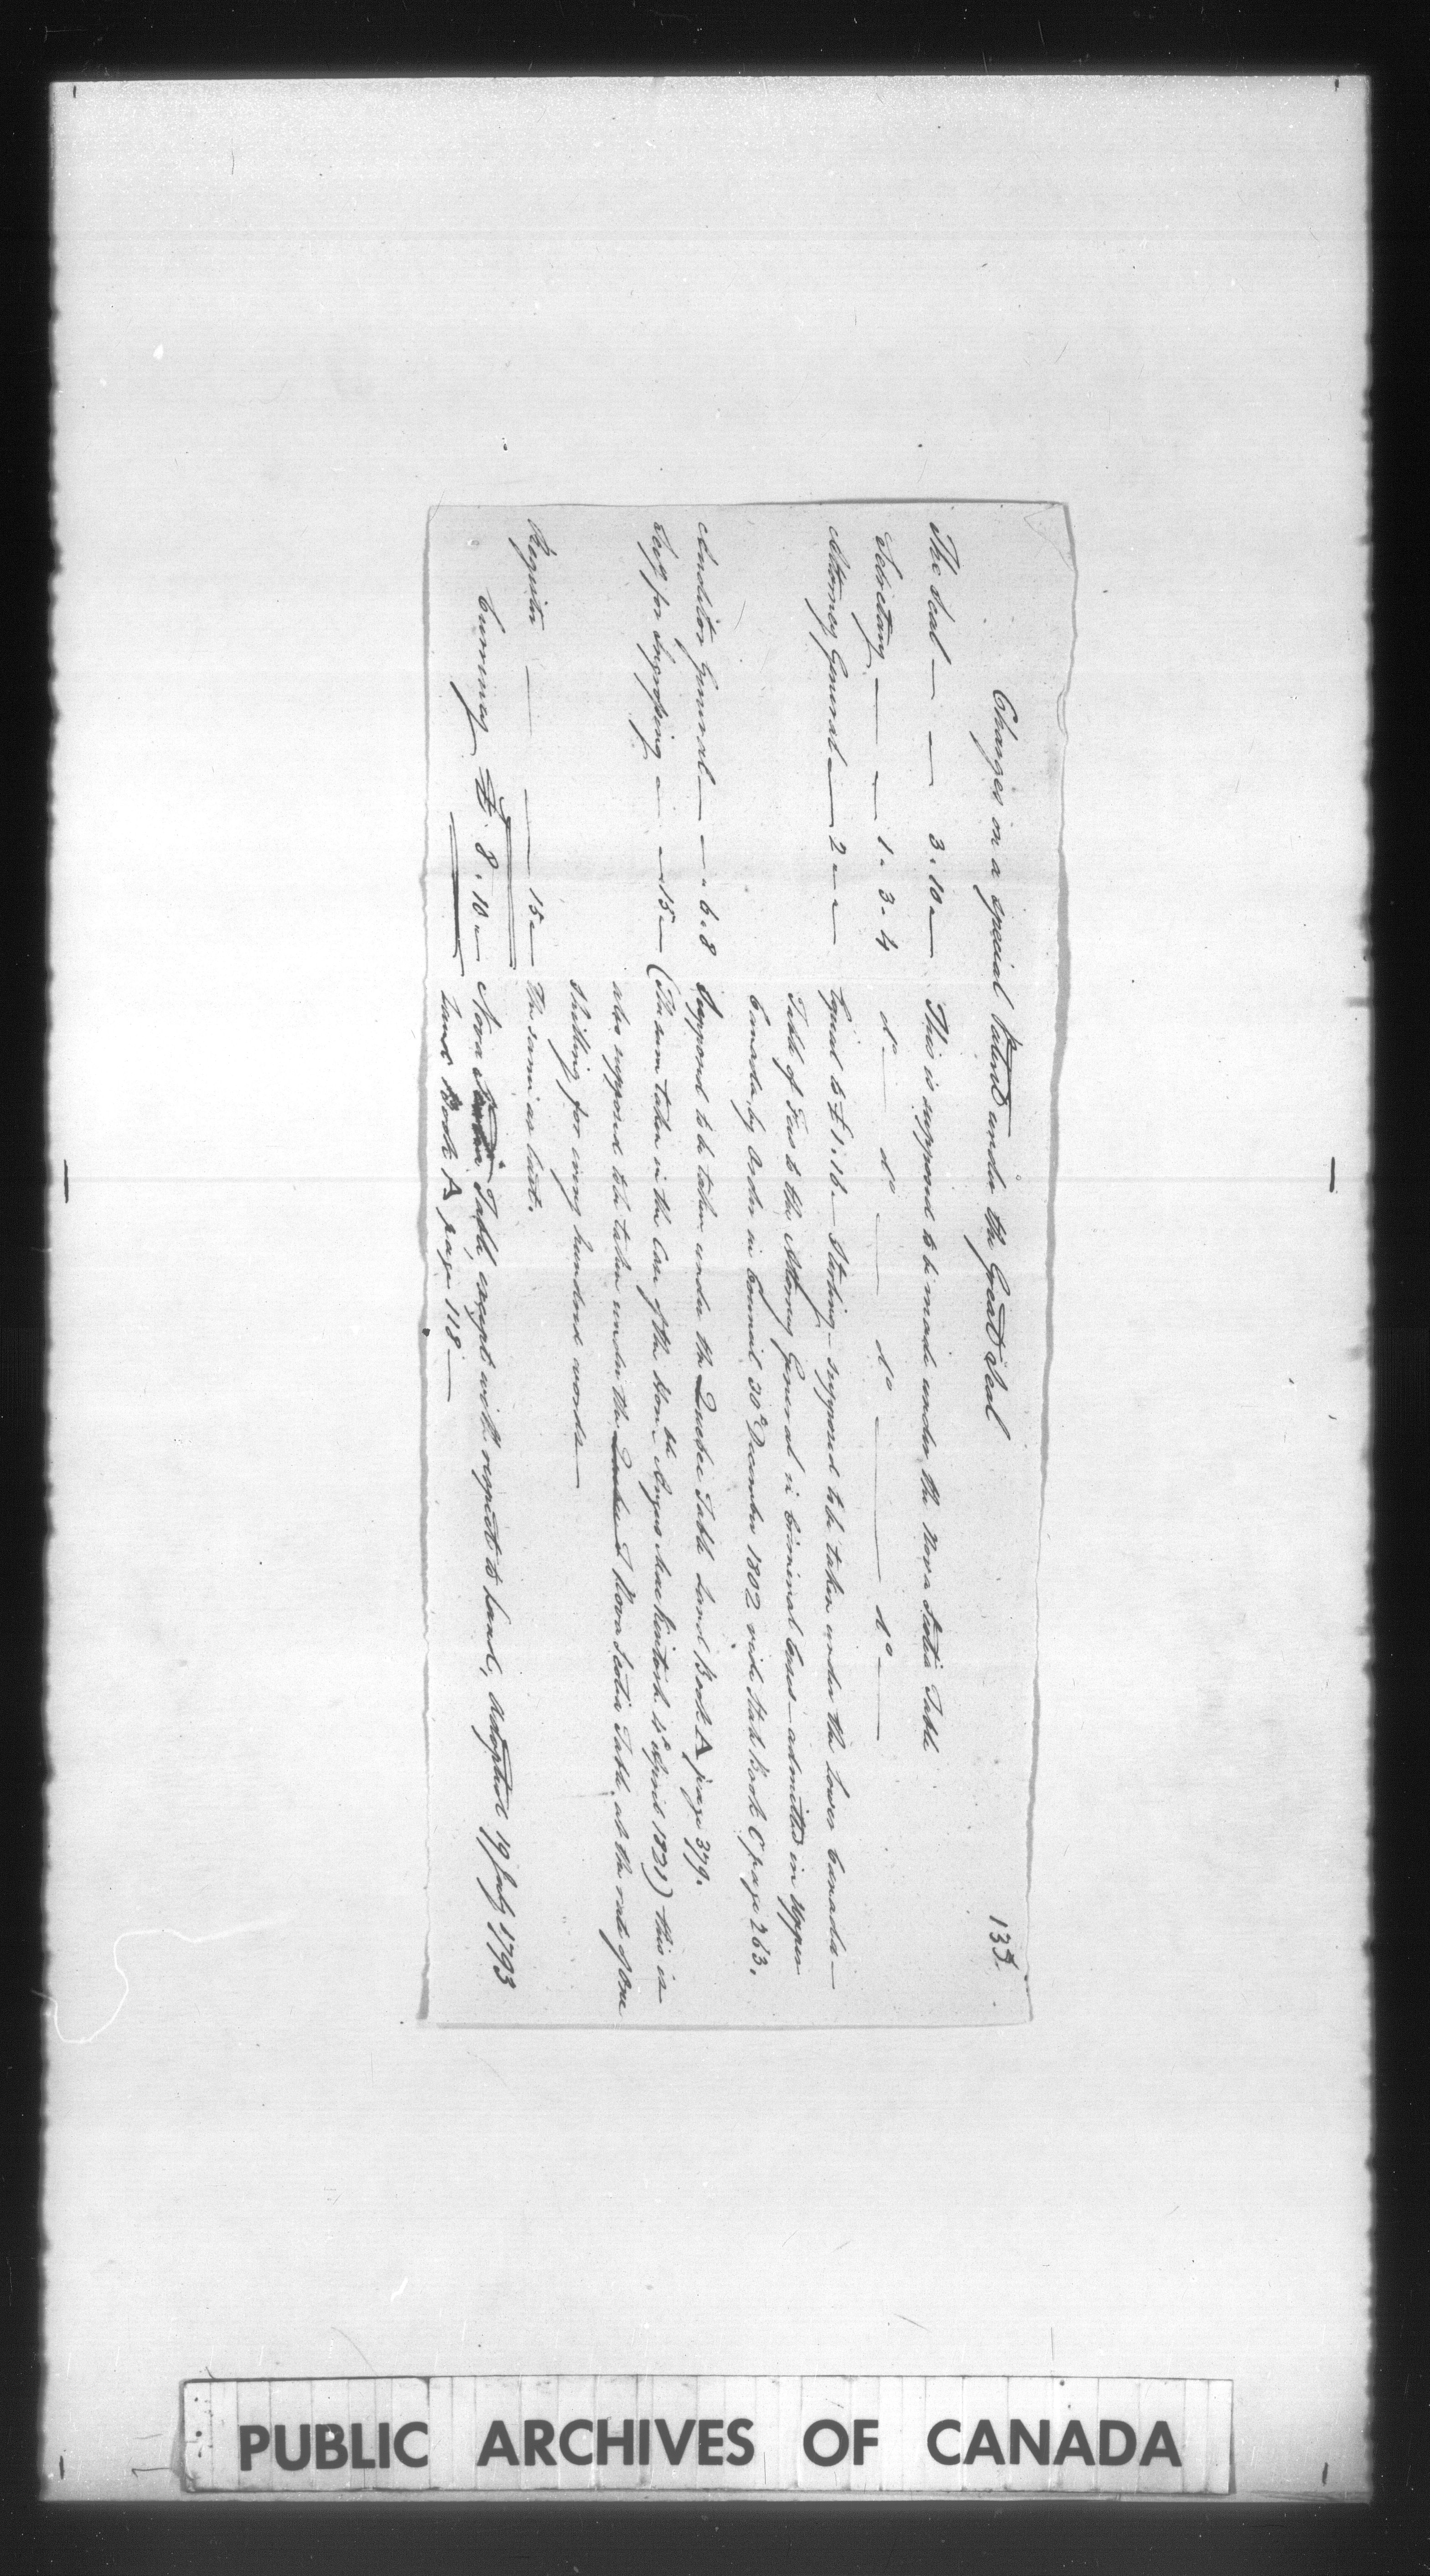 133.
Charges on a special Patent under the Great Seal
The Seal — — 3.10.— This is supposed to be made under the Nova Scotia Table
Secretary — — 1.3.4 do — do — do — do —
Attorney General — 2.— Equal to £1.16.— Sterling — supposed to be taken under the Lower Canada —
Table of Fees to the Attorney General in Criminal Cases — admitted in Upper
Canada by Order in Council 30th December 1802 vide State Book C page 263.
Auditor General — — .6.8 Supposed to be taken under the Quebec Table Land Book A page 379.
Secy for Engrossing — — .15.— (The sum taken in the Case of the Honble Angus Mackintosh April 1821) this is
also supposed to be taken under the Nova Scotia Table, at the rate of One
Shilling for every hundred words —
Register — — 15.— The same as last.
Currency £8.10.— Nova Scotia Table, except with respect to Land, adopted 19 July 1793
Land Book A page 118 —
PUBLIC ARCHIVES OF CANADA